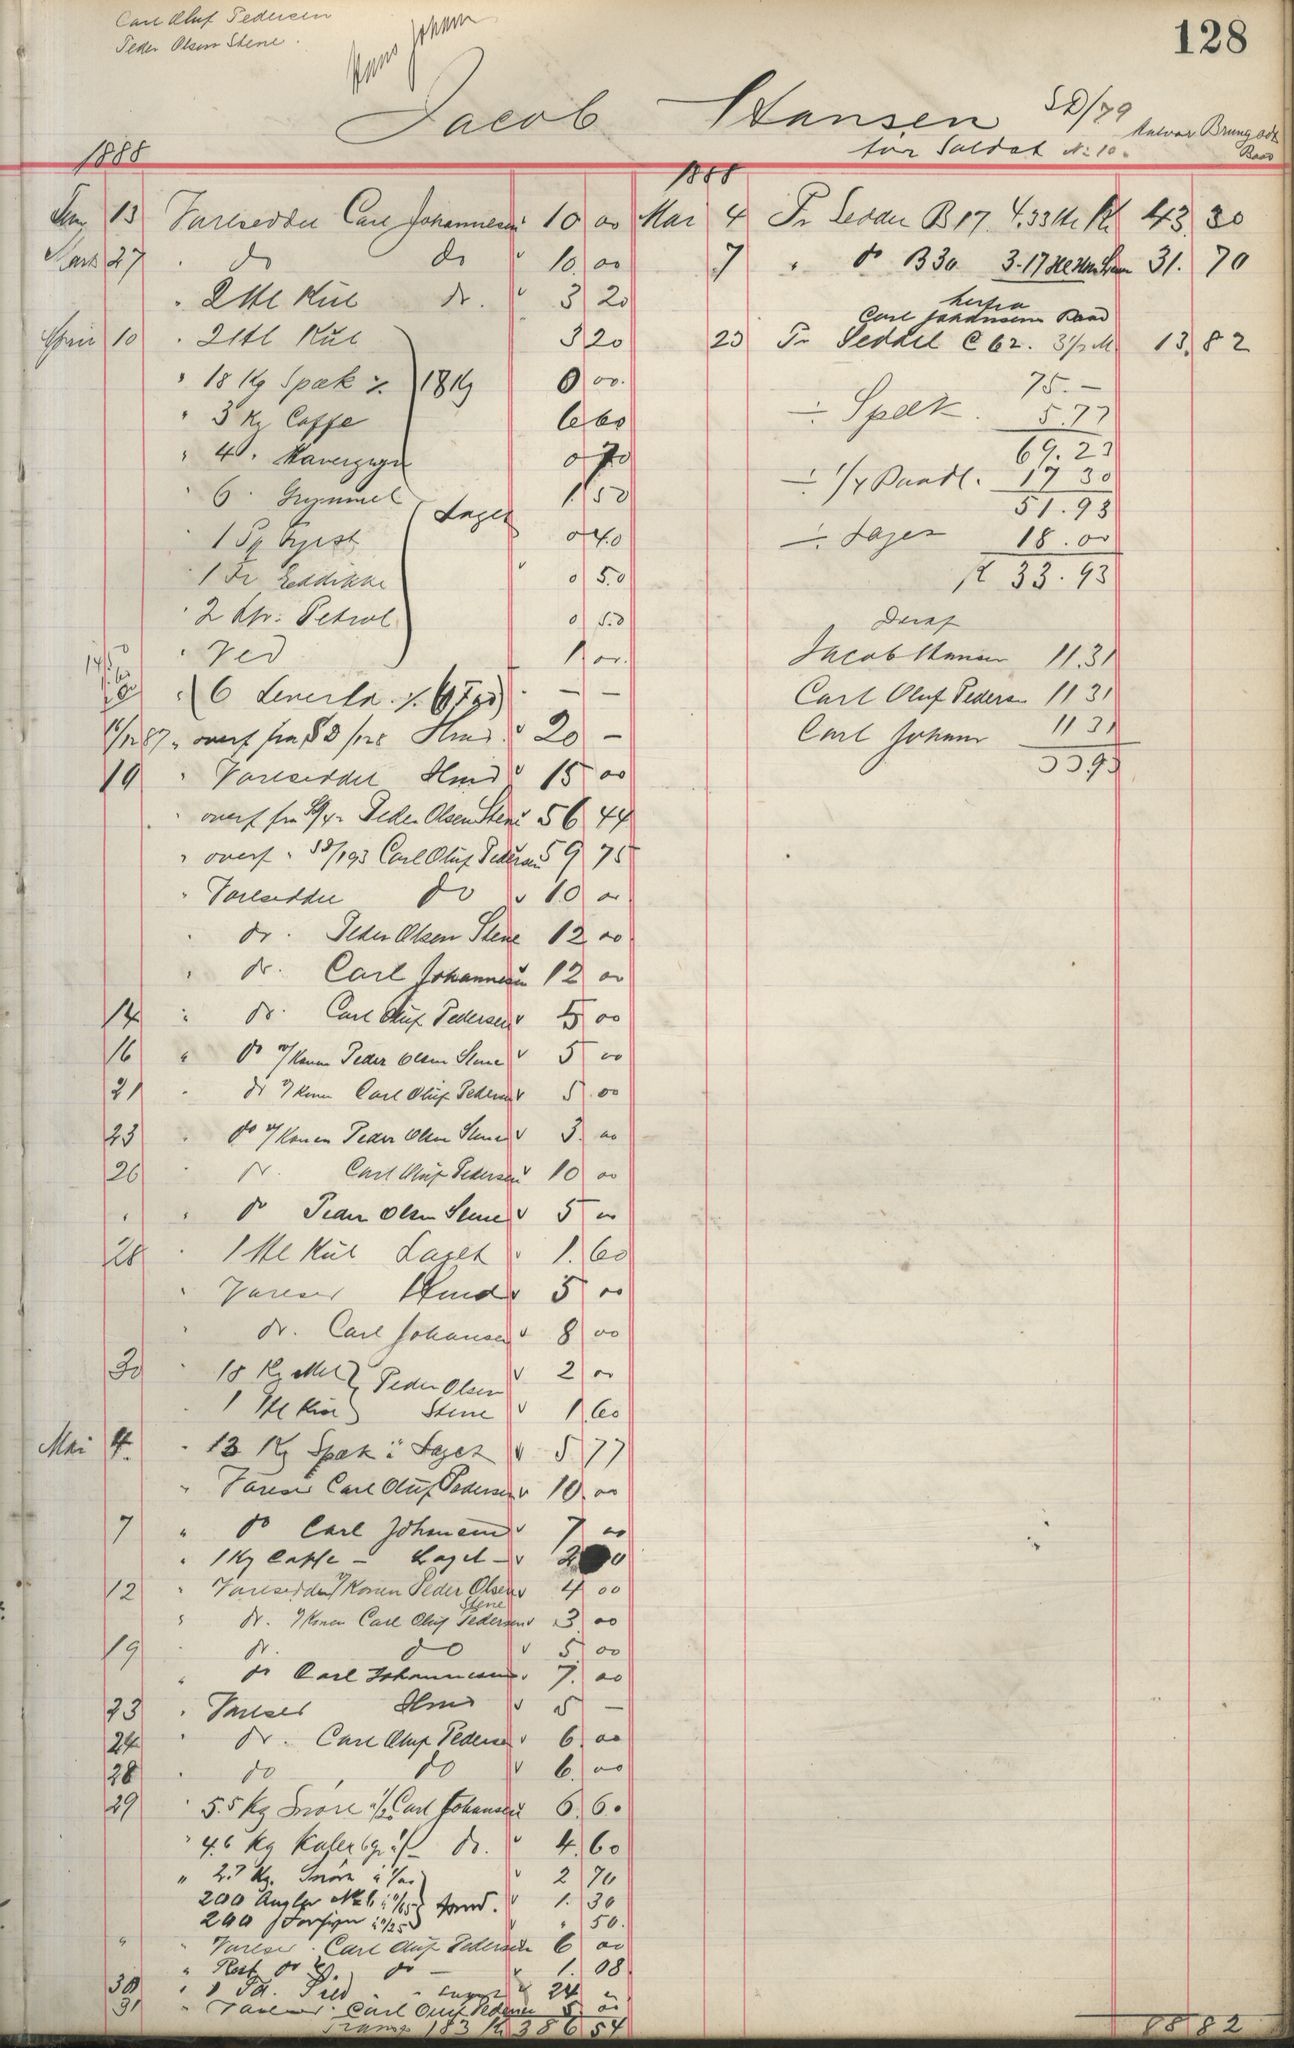 128
Carl Oluf Pedersen
Peder Olsen Stene.
Hans Johan
Jacob Hansen SD/79
for Soldat No 10.
1888
Varseddel Carl Johannesen 10 00
Marts 27 " do do 10. 00
" 2 Hl Kul do. 3 20
April 10 " 2 Hl Kul 3 20
" 18 Kg Spæk % 18 Kg 0 00.
" 3 Kg Caffe 6 60
" 4 " Havregryn 0 70
" 6 " 1. 50
Laget
0 40
" 1 Fl Eddikke 0 50
" 2 Petrol 0 50
" Ved 1 00.
" (6 % Fad) — —
16/12 87 " overf fra SD/128 Hmd. 20 —
" Vareseddel Hmd 15 00
" overf fra Peder Olsen Stene 56 44
" overf " SD/193 Carl Oluf Pedersen 59 75
" Vareseddel do 10 00
" do. Peder Olsen Stene 12 00
" do. Carl Johannesen 12 00
14 " do. Carl Oluf Pedersen 5 00
16 " do v/ Konen Peder Olsen Stene 5 00
21 " do v/ Konen Carl Oluf Pedersen 5 00
23 " do v/ Konen Peder Olsen Stene 3. 00
26 " do. Carl Oluf Pedersen 10 00
" " do Peder Olsen Stene 5 00
28 " 1 Hl Kul Laget 1. 60
" Varesed Hmd 5 00
" do. Carl Johansen 8 00
30 " 18 Kg Mel } Peder Olsen 2 00
" 1 Hl Kul } Stene 1 60
Mai 4. " 13 Kg Spæk Laget 5 77
" Varesed Carl Oluf Pedersen 10. 00
7 " do Carl Johansen 7 00
" 1 Kg Caffe — Laget — 2 0
12 " Vareseddel v/ Konen Peder Olsen Stene 4 00
" do. v/ Konen Carl Oluf Pedersen 3 00
19 " do. do 5 00
" do Carl Johannesen 7. 00
23 " Varesed Hmd 5 —
24 " do. Carl Oluf Pedersen 6. 00
28 " do do 6. 00
29 " 5.5 Kg Snøre Carl Johansen 6. 60
" 4.6 Kg do. 4. 60
" 2.7 Kg. Snøre 2 70
200 Angler Hmd. 1. 30
200 Forsyn " 50.
" " Varesed. Carl Oluf Pedersen 6 00
" Rest do do — 1. 08
30 " 24 "
31 " Carl Oluf Pedersen 5. 00
Transp 183 Kr 386 54
1888
Mai 4 Pr Seddel B 17. 4.33 Kr 43. 30
7 " do B 30 31. 70
herfra
Carl Johansens Baad
23 Pr Seddel C 62. 13. 82
75. —
÷ Spæk. 5.77
69.23
÷ 1/4 Baadl. 17 30
51.93
÷ Laget 18.00
33.93
Deraf
Jacob Hansen 11.31
Carl Oluf Pedersen 11 31
Carl Johans 11 31
33.93
88 82